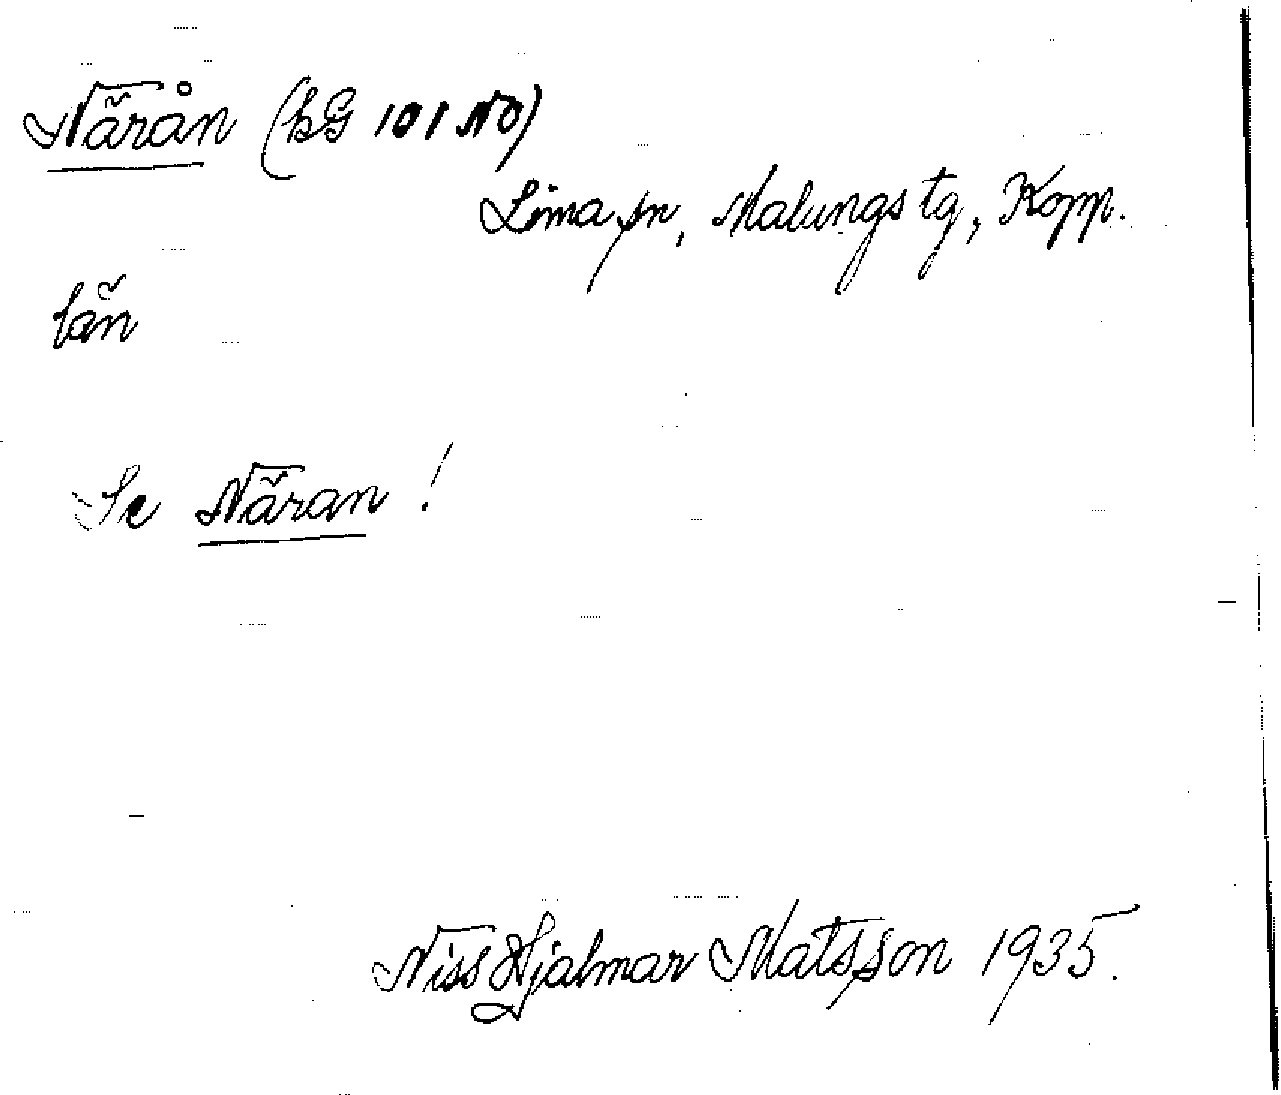 Närån (bG 101 NO)
Lima sn, Malungs tg, Kopp.
län
Se Näran!
Niss Hjalmar Matsson 1935.